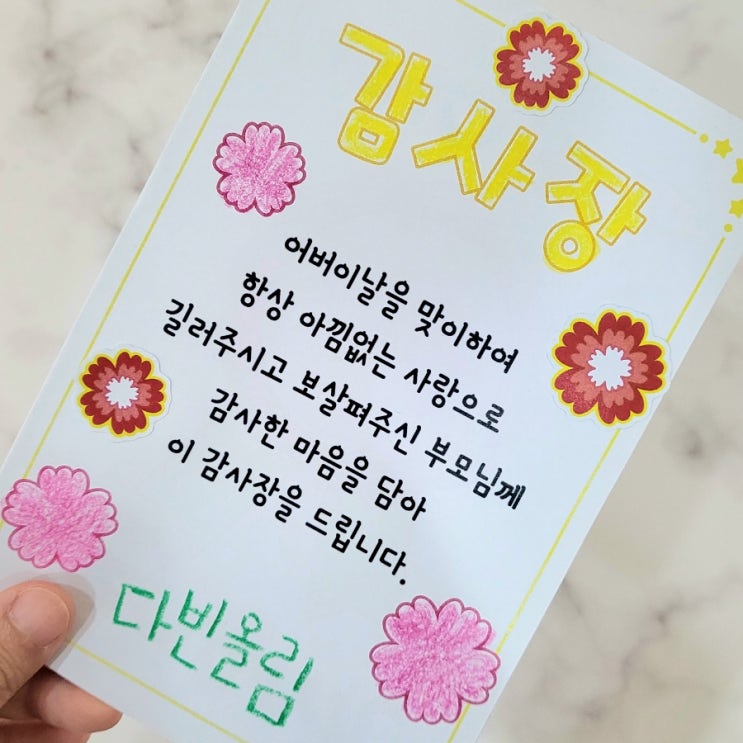 감사장
어버이날을 맞이하여
항상 아낌없는 사랑으로
길러주시고 보살펴주신 부모님께
감사한 마음을 담아
이 감사장을 드립니다.
다빈올림